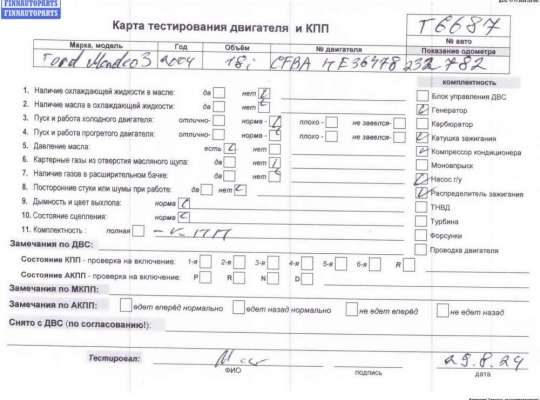 FINNAUTOPARTS
FINNAUTOPARTS
Карта тестирования двигателя и КПП
T6687
№ авто
Марка, модель Год Объём № двигателя Показание одометра
Ford Mondeo 3 2004 1.8i CFBA 4E36478 232782
комплектность
1. Наличие охлаждающей жидкости в масле: да нет
2. Наличие масла в охлаждающей жидкости: да нет
3. Пуск и работа холодного двигателя: отлично- норма - плохо - не завелся-
4. Пуск и работа прогретого двигателя: отлично- норма - плохо - не завелся-
5. Давление масла: есть нет
6. Картерные газы из отверстия масляного щупа: да нет
7. Наличие газов в расширительном бачке: да нет
8. Посторонние стуки или шумы при работе: да нет
9. Дымность и цвет выхлопа: норма
10. Состояние сцепления: норма
11. Комплектность : полная - КПП
Блок управления ДВС
Генератор
Карбюратор
Катушка зажигания
Компрессор кондиционера
Моновпрыск
Насос г/у
Распределитель зажигания
ТНВД
Турбина
Форсунки
Проводка двигателя
Замечания по ДВС:
Состояние КПП - проверка на включение: 1-я 2-я 3-я 4-я 5-я 6-я R
Состояние АКПП - проверка на включение: P R N D
Замечания по МКПП:
Замечания по АКПП: едет вперёд нормально едет назад нормально не едет вперёд не едет назад
Снято с ДВС (по согласованию!):
Тестировал: 29.8.24
ФИО подпись дата